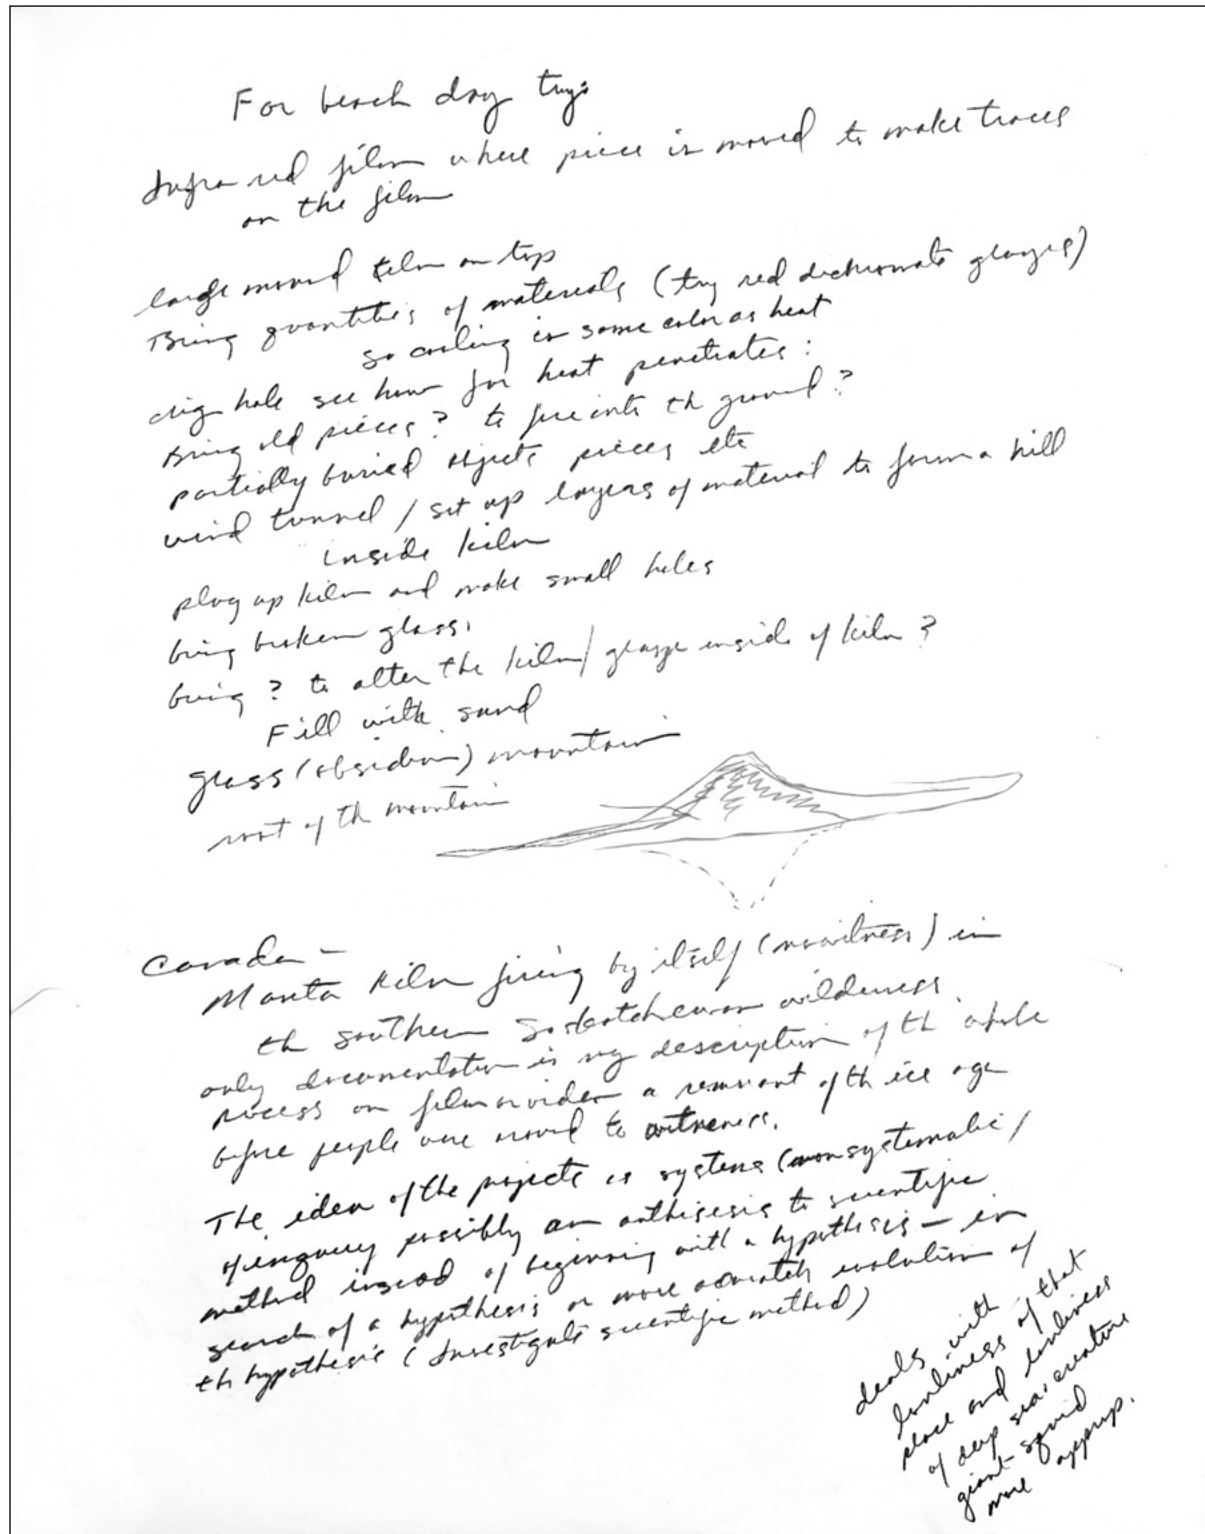 For beach day try:
Infra red film where piece is moved to make traces
on the film
large mound kiln on top
Bring quantities of materials (try red dichromate glazes)
so cooling is same color as heat
dig hole see how far heat penetrates:
Bring old pieces? to fire into th ground?
partially buried objects pieces etc
wind tunnel / set up layers of material to form a hill
inside kiln
plug up kiln and make small holes
bring broken glass.
bring ? to alter the kiln / glaze inside of kiln?
Fill with sand
glass (obsidian) mountain
root of th mountain
Canada -
Manta kiln firing by itself (no witness) in
th southern Saskatchewan wilderness.
only documentation is my description of th whole
process on film or video a remnant of th ice age
before people were around to witness.
The idea of the projects is systems (non systematic/
of inquiry possibly an
to scientific
method instead of beginning with a hypothesis - in
search of a hypothesis or more accurately evolution of
th hypothesis (Investigate scientific method)
deals with
lonliness of that
place and lonliness
of deep sea creature
giant squid
more approp.